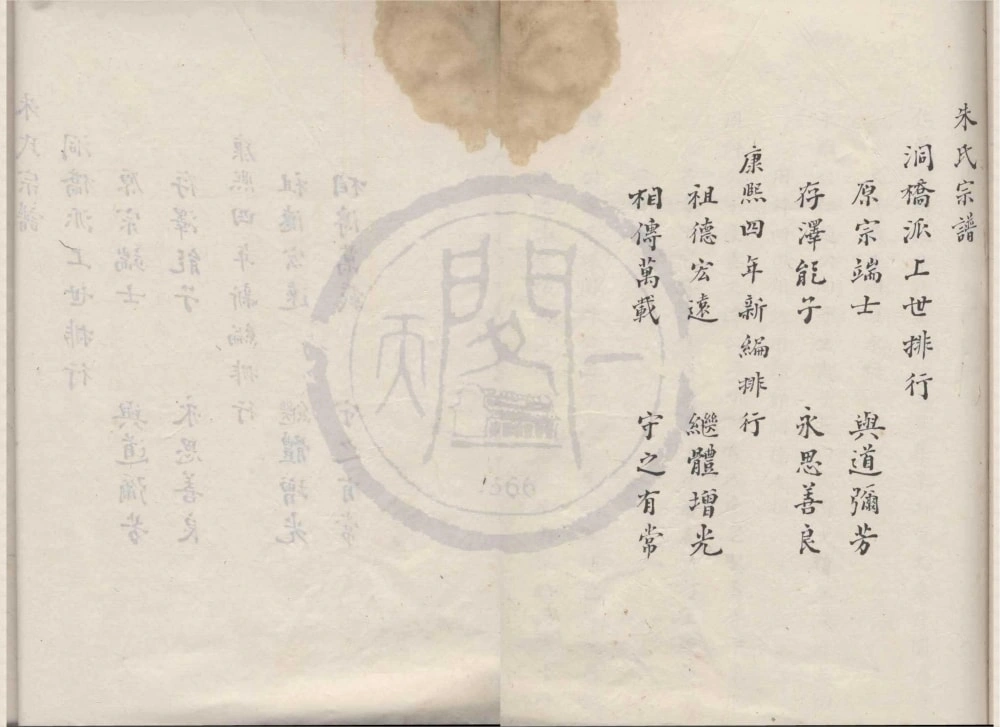 朱氏宗譜
洞橋派上世排行
原宗端士 與道彌芳
存澤能子 永思善良
康熙四年新編排行
祖德宏遠 繼體增光
相傳萬載 守之有常
天一閣
1566